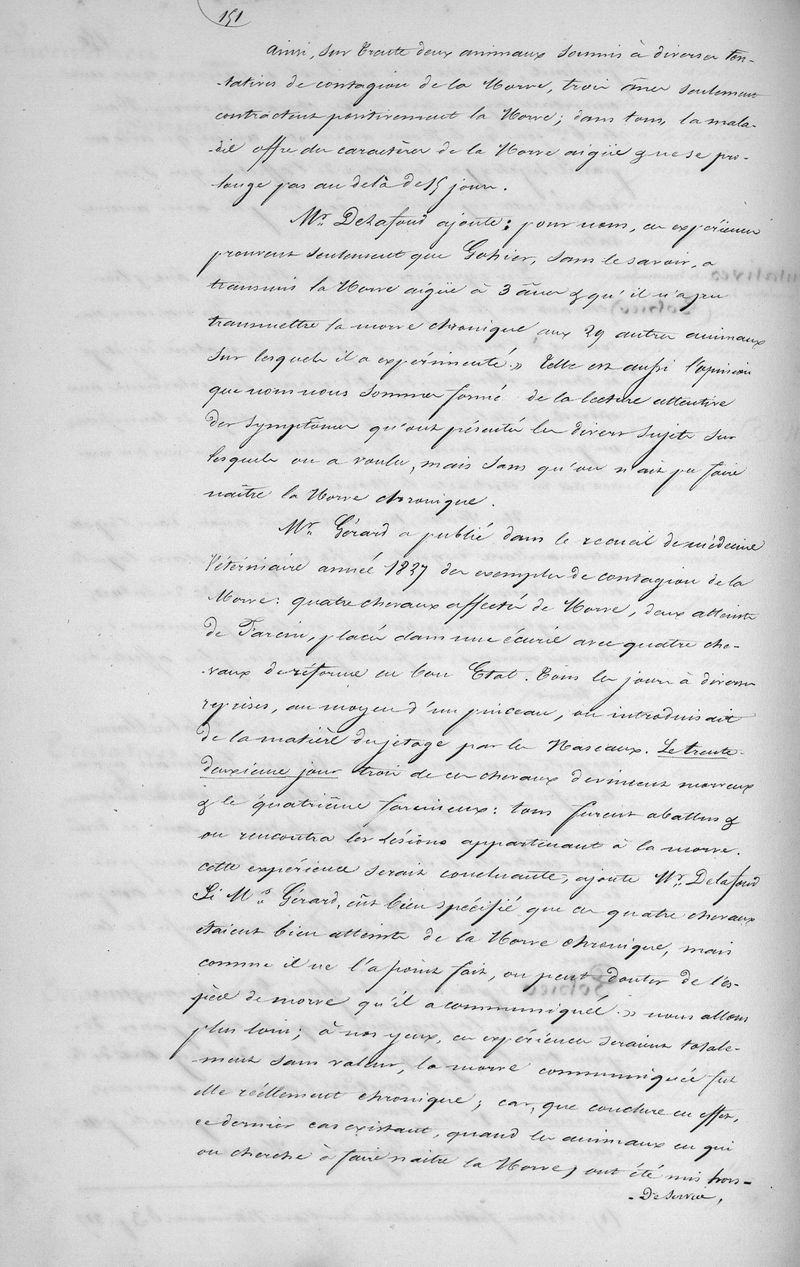 151
Ainsi, sur trente deux animaux soumis à diverses ten-
-tatives de contagion de la Morve, trois ânes seulement
contractent positivement la Morve; dans tous, la mala-
-die offre des caractères de la Morve aigüe & ne se pro-
-longe pas au delà de 15 jours.
Mr. Delafond ajoute: pour nous, ces expériences
prouvent seulement que Gohier, sans le savoir, a
transmis la Morve aigüe à 3 ânes & qu'il n'a pu
transmettre la morve chronique aux 29 autres animaux
sur lesquels il a expérimenté." Telle est aussi l'opinion
que nous nous sommes formé de la lecture attentive
des symptômes qu'ont présenté les divers sujets sur
lesquels on a voulu, mais sans qu'on n'ait pu faire
naître la Morve chronique.
Mr. Gérard a publié dans le recueil de médecine
Vétérinaire année 1837 des exemples de contagion de la
Morve: quatre chevaux affectés de Morve, deux atteints
de Farcin, placés dans une écurie avec quatre che-
-vaux de réforme en bon Etat. Tous les jours à diverses
reprises, au moyen d'un pinceau, on introduisait
de la matière du jetage par les Naseaux. Le trente-
deuxième jour trois de ces chevaux devinrent morveux
& le quatrième farcineux: tous furent abattus &
on rencontra les lésions appartenant à la morve.
cette expérience serait concluante, ajoute Mr. Delafond
Si Mr. Gérard, eût bien spécifié que ces quatre chevaux
étaient bien atteints de la Morve chronique, mais
comme il ne l'a point fait, on peut douter de l'es-
pèce de morve qu'il a communiqué." nous allons
plus loin; à nos yeux, ces expériences seraient totale-
-ment sans valeur, la morve communiquée fut
elle réellement chronique; car, que conclure en effet,
ce dernier cas existant, quand les animaux en qui
on cherche à faire naître la Morve, ont été mis hors-
-De service,